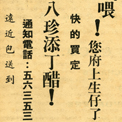 喂！您府上生仔了
快的買定
八珍添丁醋！
通知電話：五六三五三
遠近包送到